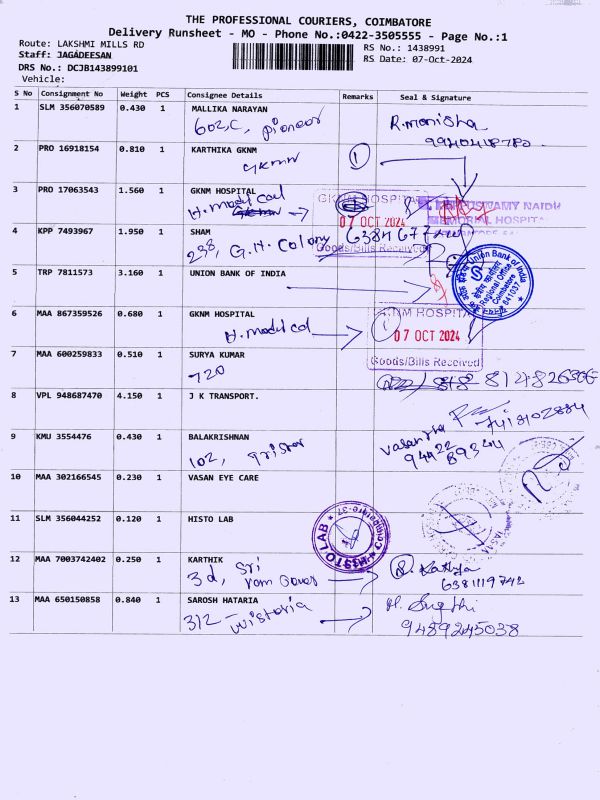 THE PROFESSIONAL COURIERS, COIMBATORE
Delivery Runsheet - MO - Phone No.:0422-3505555 - Page No.:1
Route: LAKSHMI MILLS RD
RS No.: 1438991
Staff: JAGADEESAN
RS Date: 07-Oct-2024
DRS No.: DCJB143899101
Vehicle:
S No Consignment No Weight PCS Consignee Details Remarks Seal & Signature
1 SLM 356070589 0.430 1 MALLIKA NARAYAN
602, C, pioneer R.monisha
9940418780
2 PRO 16918154 0.810 1 KARTHIKA GKNM
GKMN 1
3 PRO 17063543 1.560 1 GKNM HOSPITAL
H. medical
GKNM HOSPITAL
07 OCT 2024
Goods/Bills Received
KUPPUSWAMY NAIDU
MEMORIAL HOSPITAL
4 KPP 7493967 1.950 1 SHAM
238, G.H. Colony
5 TRP 7811573 3.160 1 UNION BANK OF INDIA
Union Bank of India
Regional Office
Coimbatore
641037
6 MAA 867359526 0.680 1 GKNM HOSPITAL
H. medical 1
GKNM HOSPITAL
07 OCT 2024
Goods/Bills Received
7 MAA 600259833 0.510 1 SURYA KUMAR
720
8 VPL 948687470 4.150 1 J K TRANSPORT.
9 KMU 3554476 0.430 1 BALAKRISHNAN
102, Tristar Vasantha
94422 89344
10 MAA 302166545 0.230 1 VASAN EYE CARE
11 SLM 356044252 0.120 1 HISTO LAB
HISTO LAB
Coimbatore-37
12 MAA 7003742402 0.250 1 KARTHIK
3d, Sri
R. Kathya
6381119742
13 MAA 650150858 0.840 1 SAROSH HATARIA
312 Wistaria
9489245038